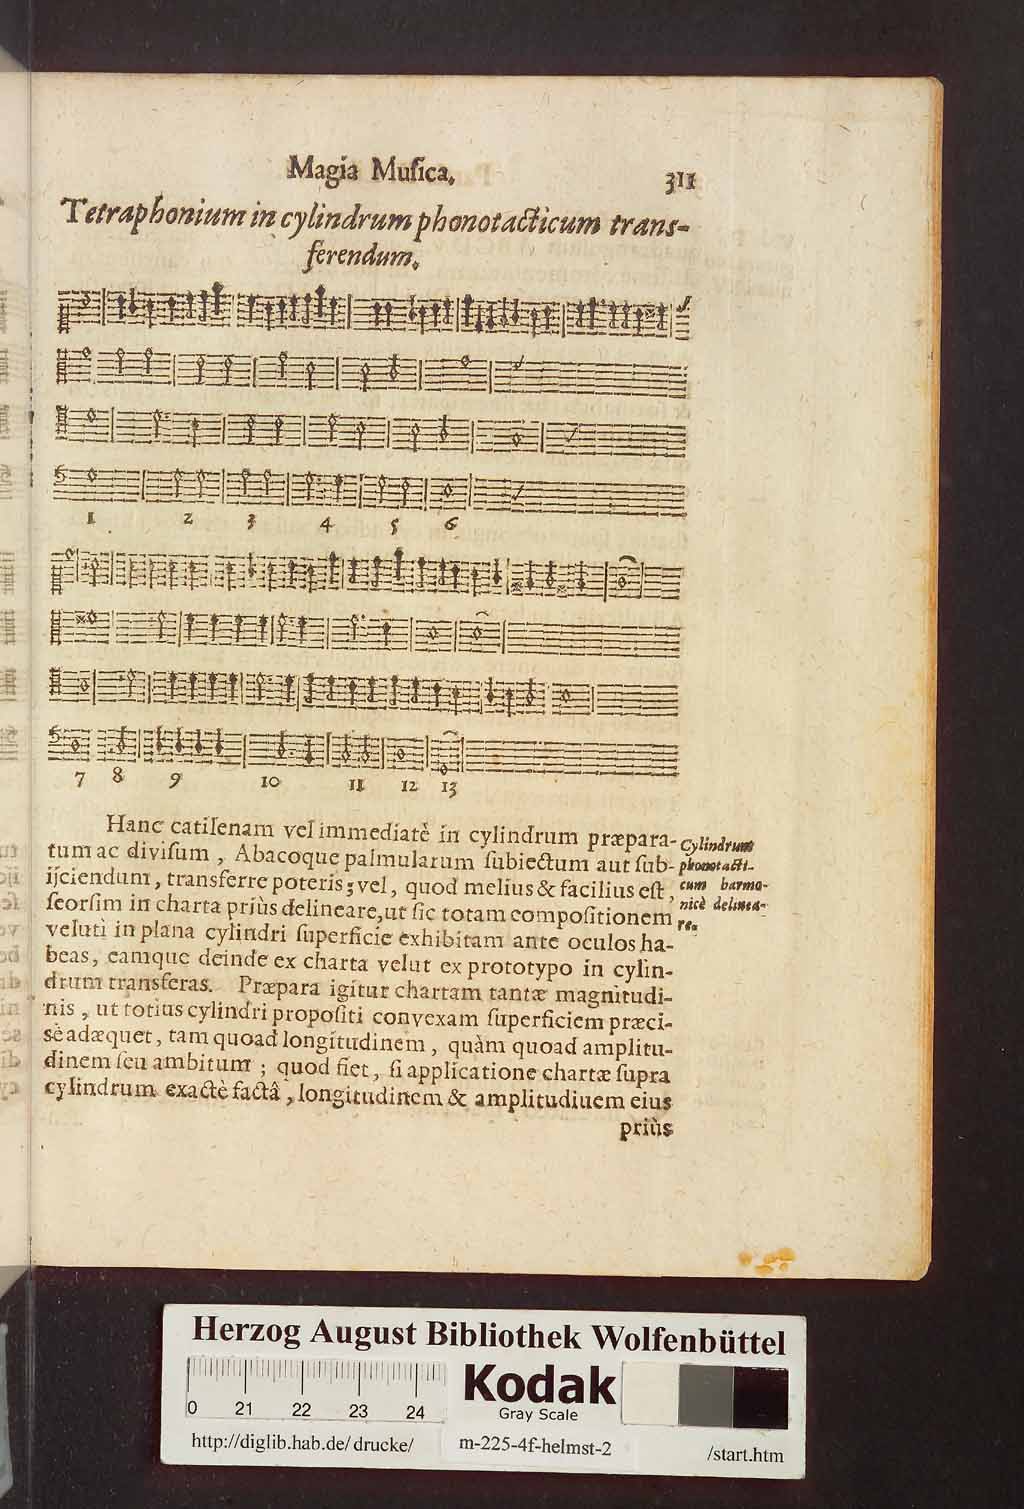 Magia Muſica. 311
Tetraphonium in cylindrum phonotacticum trans-
ferendum.
1 2 3 4 5 6
7 8 9 10 11 12 13
Hanc catilenam vel immediatè in cylindrum præpara-
tum ac diviſum, Abacoque palmularum ſubiectum aut ſub-
ijciendum, transferre poteris; vel, quod melius & facilius eſt,
ſeorſim in charta priùs delineare, ut ſic totam compoſitionem
veluti in plana cylindri ſuperficie exhibitam ante oculos ha-
beas, eamque deinde ex charta velut ex prototypo in cylin-
drum transferas. Præpara igitur chartam tantæ magnitudi-
nis, ut totius cylindri propoſiti convexam ſuperficiem præci-
sè adæquet, tam quoad longitudinem, quàm quoad amplitu-
dinem ſeu ambitum; quod fiet, ſi applicatione chartæ ſupra
cylindrum exactè factâ, longitudinem & amplitudiuem eius
priùs
Cylindrum
phonotacti-
cum harmo-
nicè delinea-
re.
Herzog August Bibliothek Wolfenbüttel
0 21 22 23 24
Kodak
Gray Scale
http://diglib.hab.de/drucke/ m-225-4f-helmst-2 /start.htm